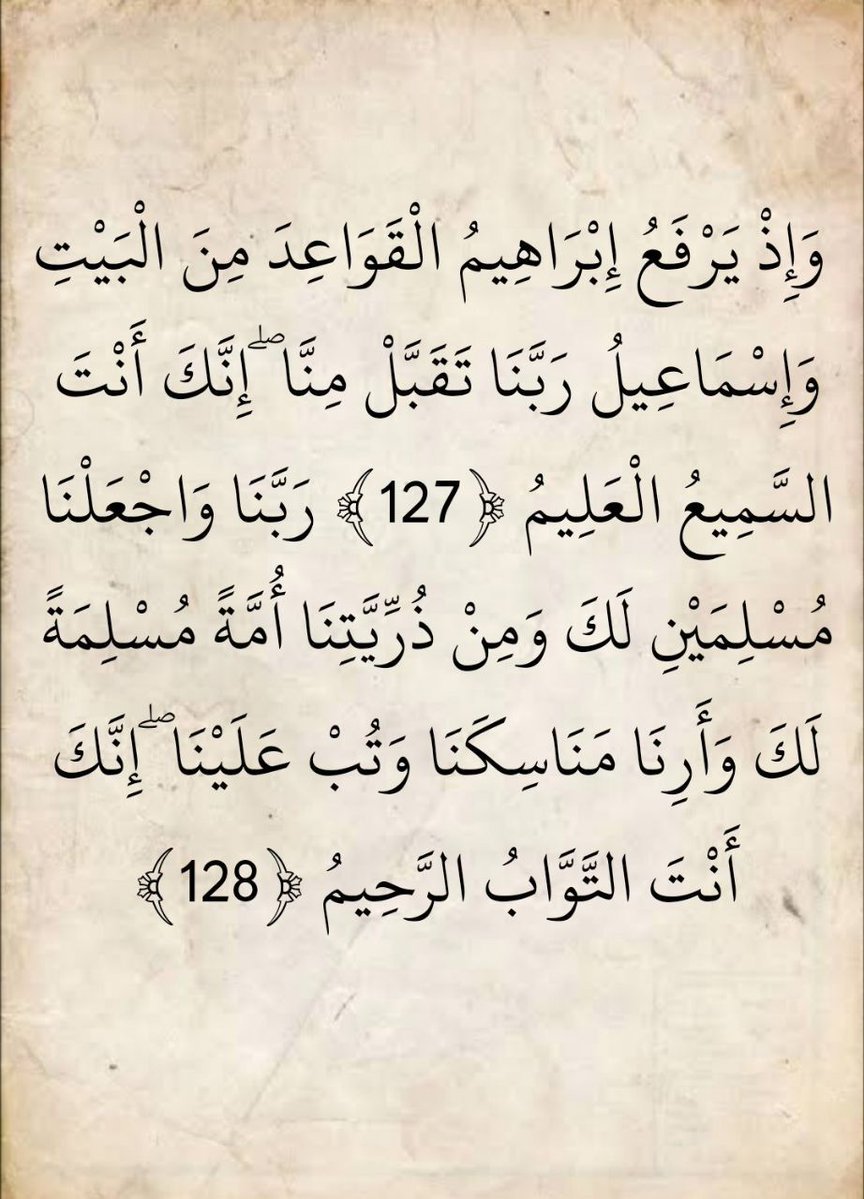 وَإِذْ يَرْفَعُ إِبْرَاهِيمُ الْقَوَاعِدَ مِنَ الْبَيْتِ
وَإِسْمَاعِيلُ رَبَّنَا تَقَبَّلْ مِنَّا ۖ إِنَّكَ أَنْتَ
السَّمِيعُ الْعَلِيمُ ﴿127﴾ رَبَّنَا وَاجْعَلْنَا
مُسْلِمَيْنِ لَكَ وَمِنْ ذُرِّيَّتِنَا أُمَّةً مُسْلِمَةً
لَكَ وَأَرِنَا مَنَاسِكَنَا وَتُبْ عَلَيْنَا ۖ إِنَّكَ
أَنْتَ التَّوَّابُ الرَّحِيمُ ﴿128﴾